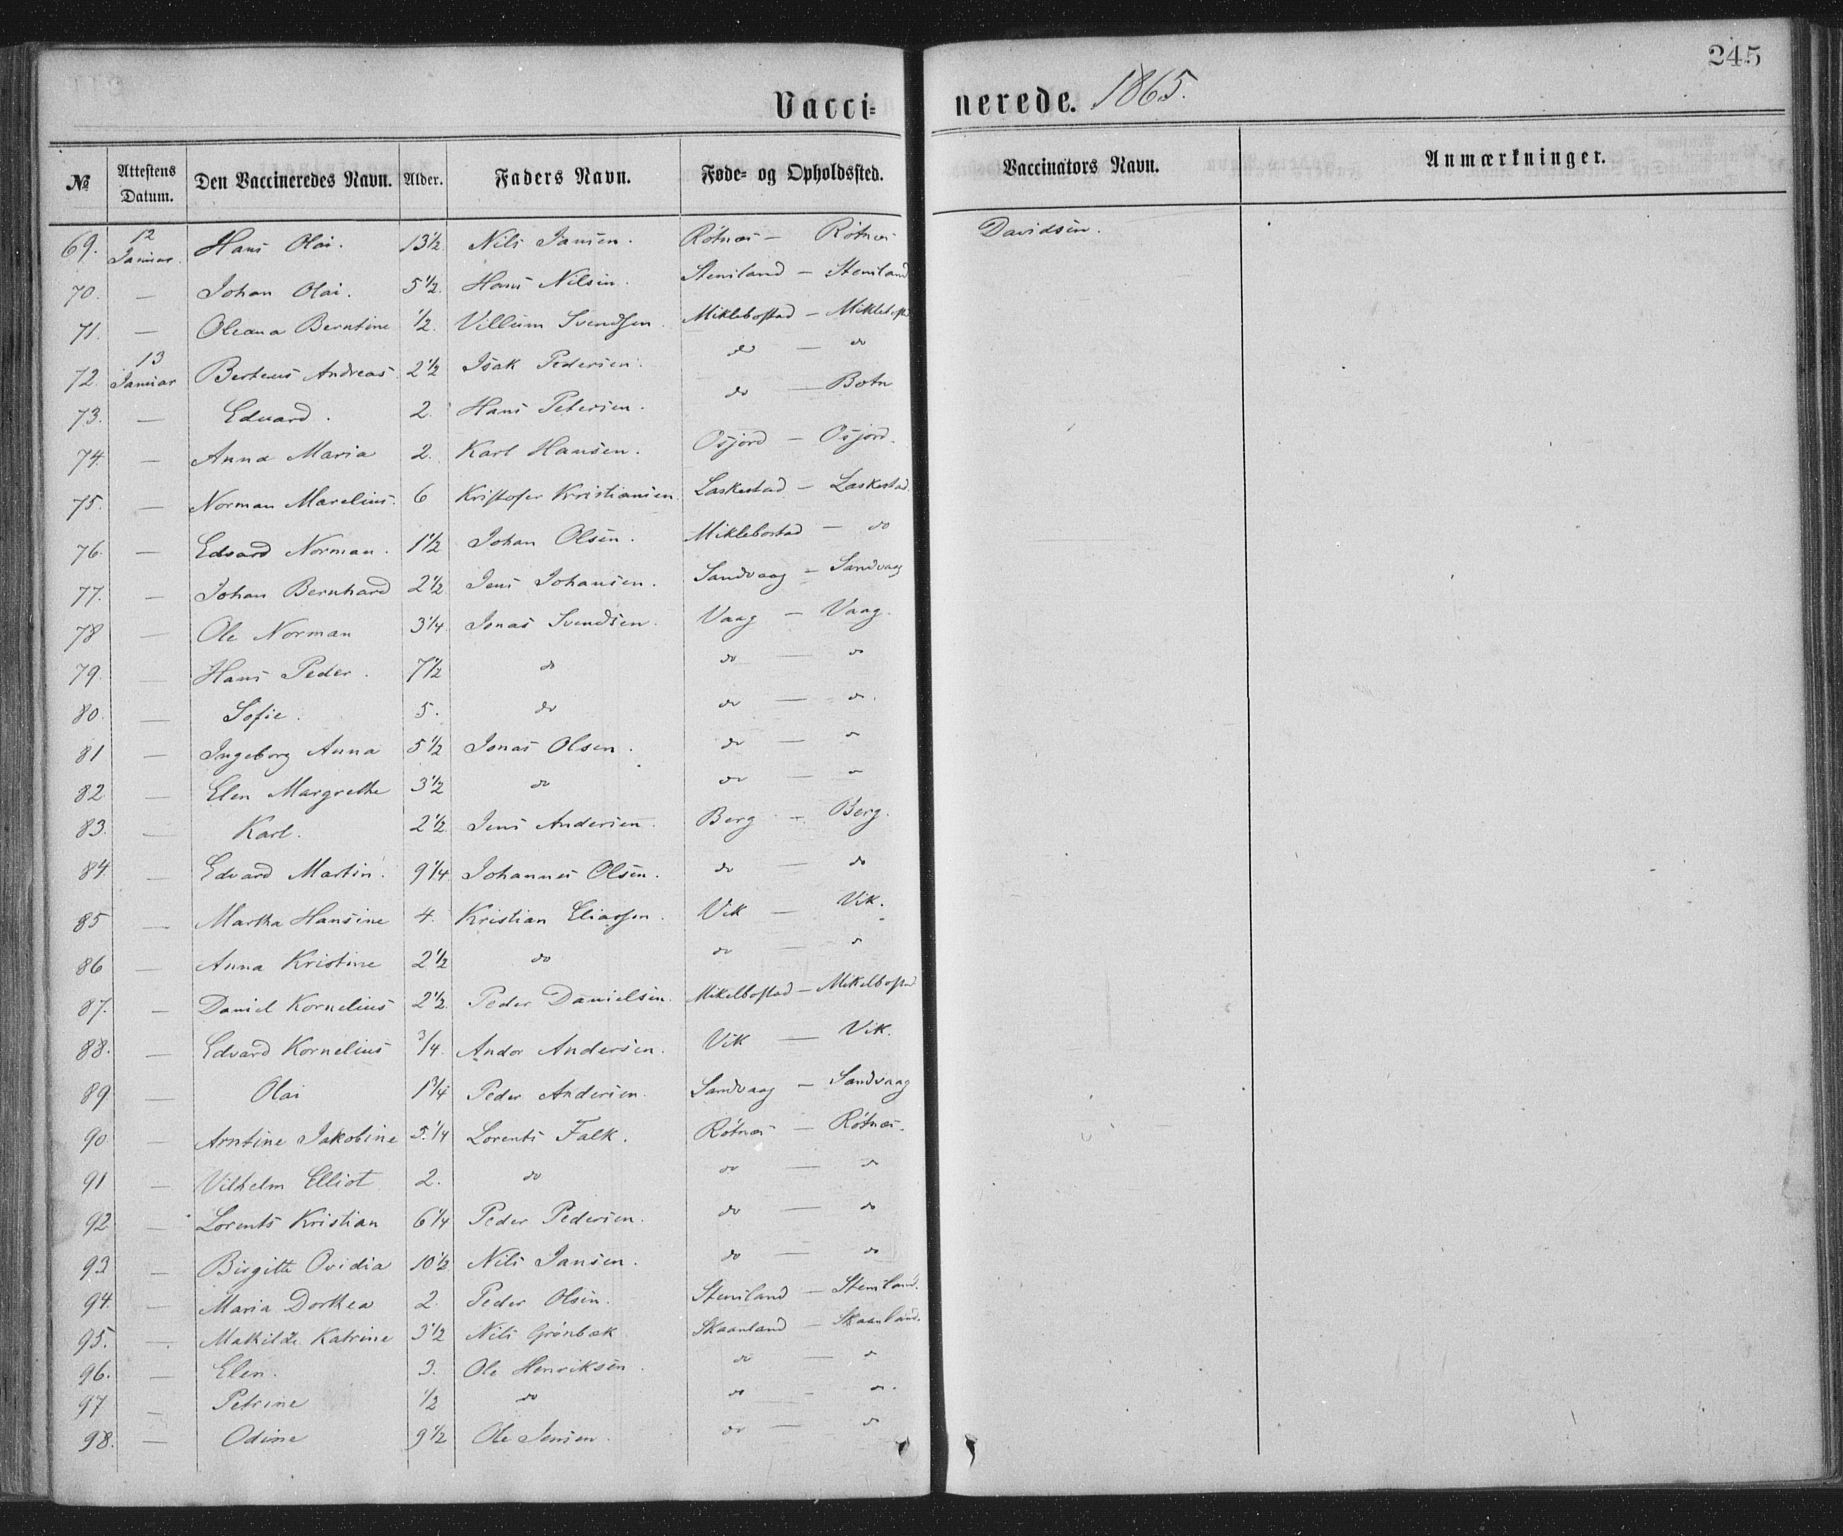 245
Vacci= nerede. 1865.
№ Attestens Datum. Den Vaccineredes Navn. Alder. Faders Navn. Føde- og Opholdssted. Vaccinators Navn. Anmærkninger.
69. 12 Januar. Hans Olai. 13½ Nils Jansen. Røtnæs — Røtnæs Davidsen.
70. — Johan Olai. 5½. Hans Nilsen. Stensland — Stensland
71. — Oleana Berntine ½. Villum Svendsen. Miklebostad — Miklebostad
72. 13 Januar Berteus Andreas. 2½ Isak Pedersen. do — do
73. — Edvard. 2. Hans Petersen. do — Botn
74. — Anna Maria 2. Karl Hansen. Osjord — Osjord.
75. — Norman Marelius. 6 Kristofer Kristiansen Laskestad — Laskestad.
76. — Edvard Norman. 1½ Johan Olsen. Miklebostad — do
77. — Johan Bernhard 2½ Jens Johansen. Sandvaag — Sandvaag
78 — Ole Norman 3¼. Jonas Svendsen. Vaag — Vaag.
79. — Hans Peder. 7½ do do — do
80. — Sofie. 5. do do — do.
81 — Ingeborg Anna 5½ Jonas Olsen. do — do
82. — Elen Margrethe 3½ do do — do
83. — Karl. 2½ Jens Andersen. Berg — Berg.
84 — Edvard Martin. 9¼ Johannes Olsen. do — do
85 — Martha Hansine 4. Kristian Eliassen. Vik — Vik.
86 — Anna Kristine 2½ do do — do
87. — Daniel Kornelius 2½. Peder Danielsen. Mikelbostad — Mikelbostad
88. — Edvard Kornelius ¾. Andor Andersen. Vik — Vik.
89 — Olai 1¾ Peder Andersen. Sandvaag — Sandvaag
90 — Arntine Jakobine 5.¼ Lorents Falk. Røtnæs — Røtnæs.
91 — Vilhelm Elliot 2. do do — do
92 — Lorents Kristian 6¼ Peder Pedersen. do — do
93 — Birgitte Ovidia 10½ Nils Jansen. do — do
94. — Maria Dorthea 2. Peder Olsen. Stensland — Stensland.
95. — Mathilde Katrine 3½ Nils Grønbæk Skaanland — Skaanland.
96. — Elen. 3. Ole Henriksen. do — do
97 — Petrine ½ do do — do.
98. — Odine 9½ Ole Jensen. do — do